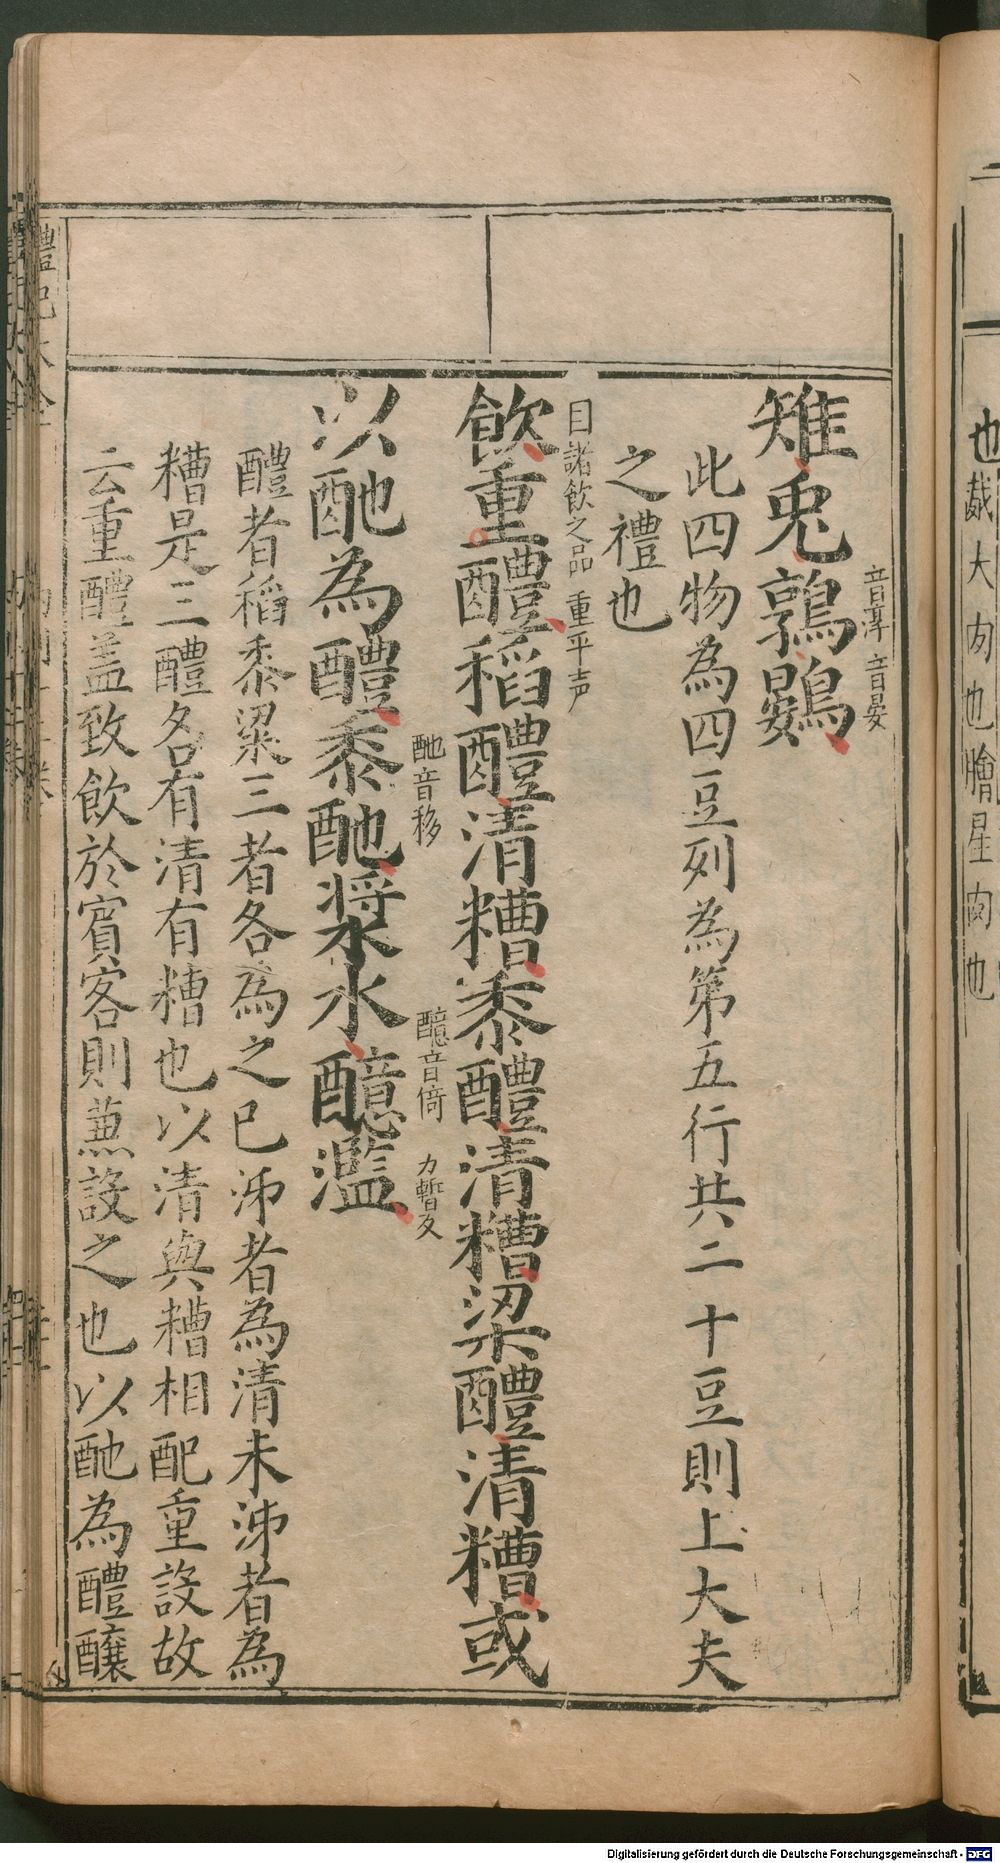 也胾大肉也膾星肉也
雉兎鶉鷃
音淳 音晏
此四物為四豆列為第五行共二十豆則上大夫
之禮也
目諸飲之品 重平声
飲重醴稻醴清糟黍醴清糟梁醴清糟或
酏音移 醷音倚 力暫反
以酏為醴黍酏漿水醷濫
醴者稻黍粱三者各為之已泲者為清未泲者為
糟是三醴各有清有糟也以清與糟相配重設故
云重醴盖致飲於賓客則蒹設之也以酏為醴釀
Digitalisierung gefördert durch die Deutsche Forschungsgemeinschaft - DFG